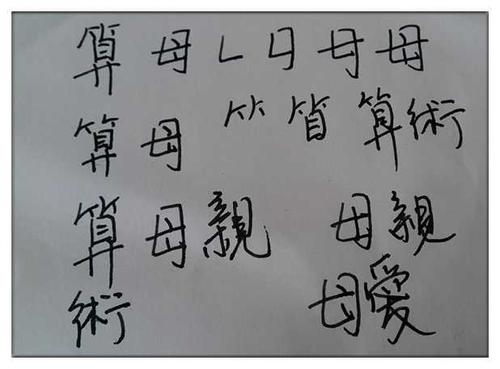 算 母 𠃊 母 母 母
算 母 𥫗 筲 算術
算母親 母親
術 母愛